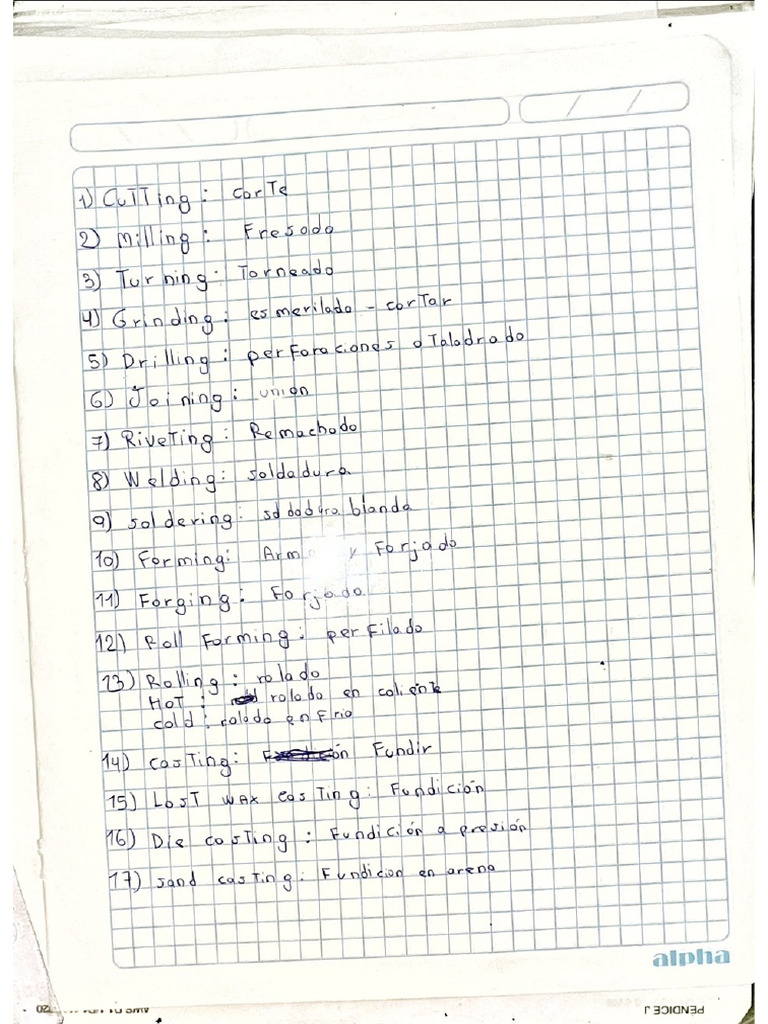 1) Cutting: corte
2) Milling: Fresado
3) Turning: Torneado
4) Grinding: esmerilado - cortar
5) Drilling: perforaciones o Taladrado
6) Joining: union
7) Riveting: Remachado
8) Welding: soldadura
9) soldering: soldadura blanda
10) Forming: y Forjado
11) Forging: Forjado
12) Roll Forming: perfilado
13) Rolling: rolado
HOT: rolado en caliente
cold: rolado en Frio
14) casting: Fundir
15) Lost wax casting: Fundición
16) Die casting: Fundición a presión
17) sand casting: Fundicion en arena
alpha
PENDICE J